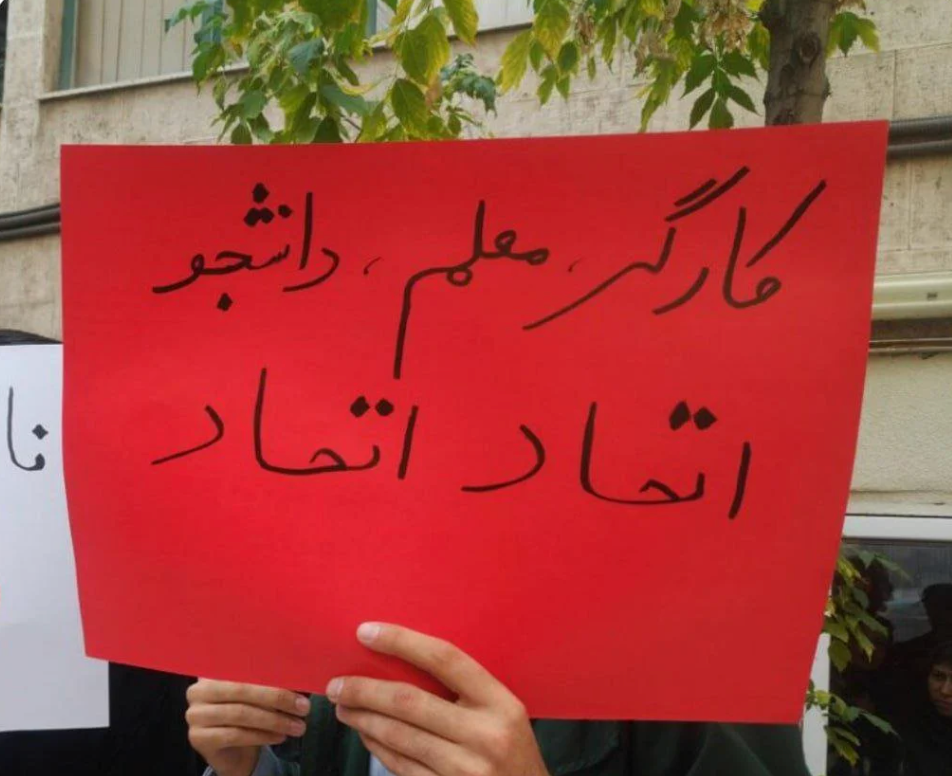 کارگر، معلم، دانشجو
اتحاد اتحاد